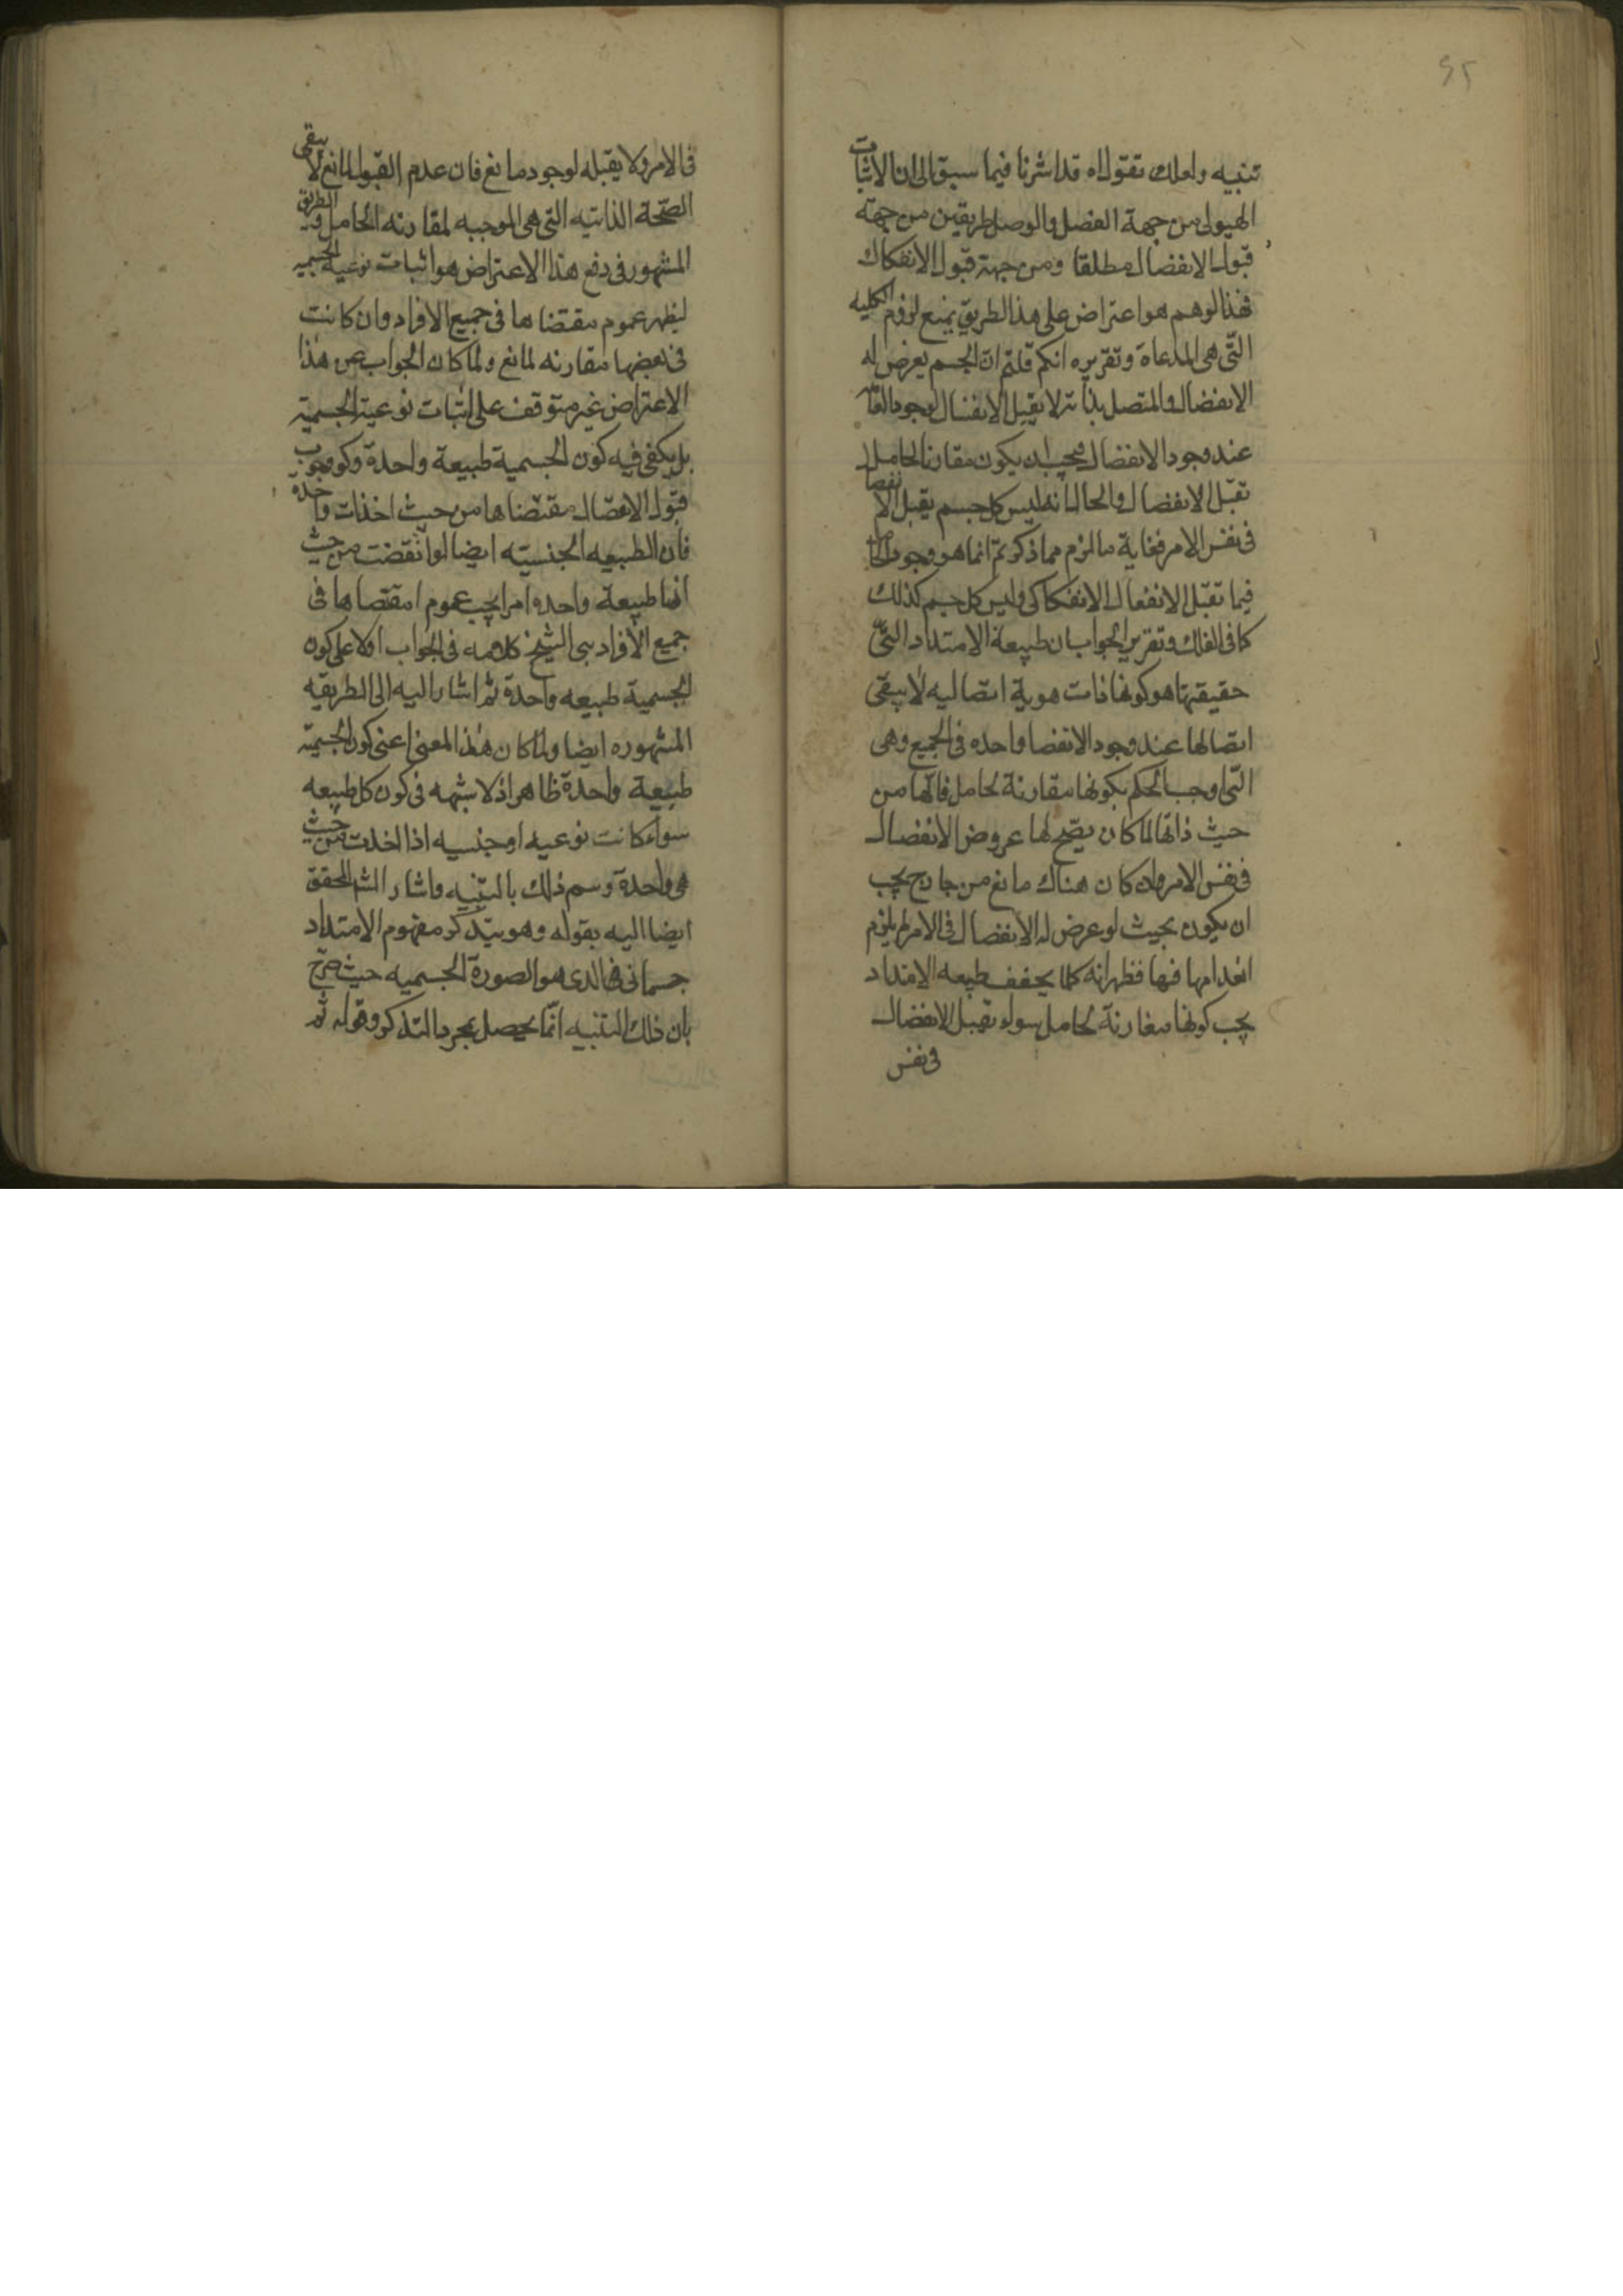 ٩٢
تنبيه ولعلك تقول اه قد اشرنا فيما سبق الى ان لاثبات
الهيولى من جهة الفصل والوصل طريقين من جهة
قبول الانفصال مطلقا ومن جهة قبول الانفكاك
فهذا لوهم هو اعتراض على هذا الطريق يمنع لزوم الكليه
التّى هى المدعاة وتقريره انكم قلتم انّ الجسم يعرض له
الانفصال والمتصل بذاته لا يقبل الانفصال لوجود
عند وجود الانفصال فيجب ان يكون مقارنا لحامل
تقبّل الانفصال والحال انه ليس كل جسم يقبل الانفصا
فى نفس الامر فغاية ما لزم مما ذكرتم انما هو وجود
فيما تقبّل الانفعال الانفكاكى وليس كل جسم كذلك
كما فى الفلك وتقرير الجواب ان طبيعة الامتداد التىّ
حقيقتها هو كونها ذات هوية اتصاليه لا يبقى
اتصالها عند وجود الانفصا واحده فى الجميع وهى
التّى اوجب الحكم بكونها مقارنة لحامل فانّها من
حيث ذاتها لما كان يصّح لها عروض الانفصال
فى نفس الامر وان كان هناك مانع من خارج يجب
ان يكون بحيث لو عرض له الانفصال فى الامر لم يلزم
انعدامها فيها فظهر انه كلما طبيعه الامتداد
يجب كونها مقارنة لحامل سواء تقبل الانفصال
فى نفس
فى الامر ولا يقبله لوجود مانع فان عدم القبول لمانع لا يبقى
الصّحة الذاتيه التى هى الموجبه لمقارنه الحامل و الطريق
المشهور فى دفع هذا الاعتراض هو اثبات نوعية الجسميه
ليظهر عموم مقتضاها فى جميع الافراد وان كانت
فى بعضها مقارنه لمانع ولما كان الجواب عن هذا
الاعتراض غير متوقف على اثبات نوعية الجسمية
بل يكفى فيه كون الجسمية طبيعة واحدة وكون وجوب
قبول الانفصال مقتضاها من حيث اخذات واحده
فان الطبيعه الجنسيّه ايضا لو انقضت من حيث
انها طبيعة واحده امرا يجب عموم امقتضاها فى
جميع الافراد بنى الشيخ كلامه فى الجواب اولا على كون
الجسمية طبيعه واحدة ثم اشار اليه الى الطريقه
المشهوره ايضا ولما كان هذا المعنى اعنى كون الجسميّة
طبيعة واحدة ظاهرا اذ لا شبهه فى كون كل طبيعه
سواء كانت نوعيه او جنسيه اذا اخذت من حيث
هى واحدة وسم ذلك بالتنبيه واشار الشه المحقق
ايضا اليه بقوله وهو بتذكر مفهوم الامتداد
جسمانى فالذى هو الصورة الجسميه حيث صرح
بان ذلك التنبيه انّما يحصل بمجرد التذكر وقوله ثم